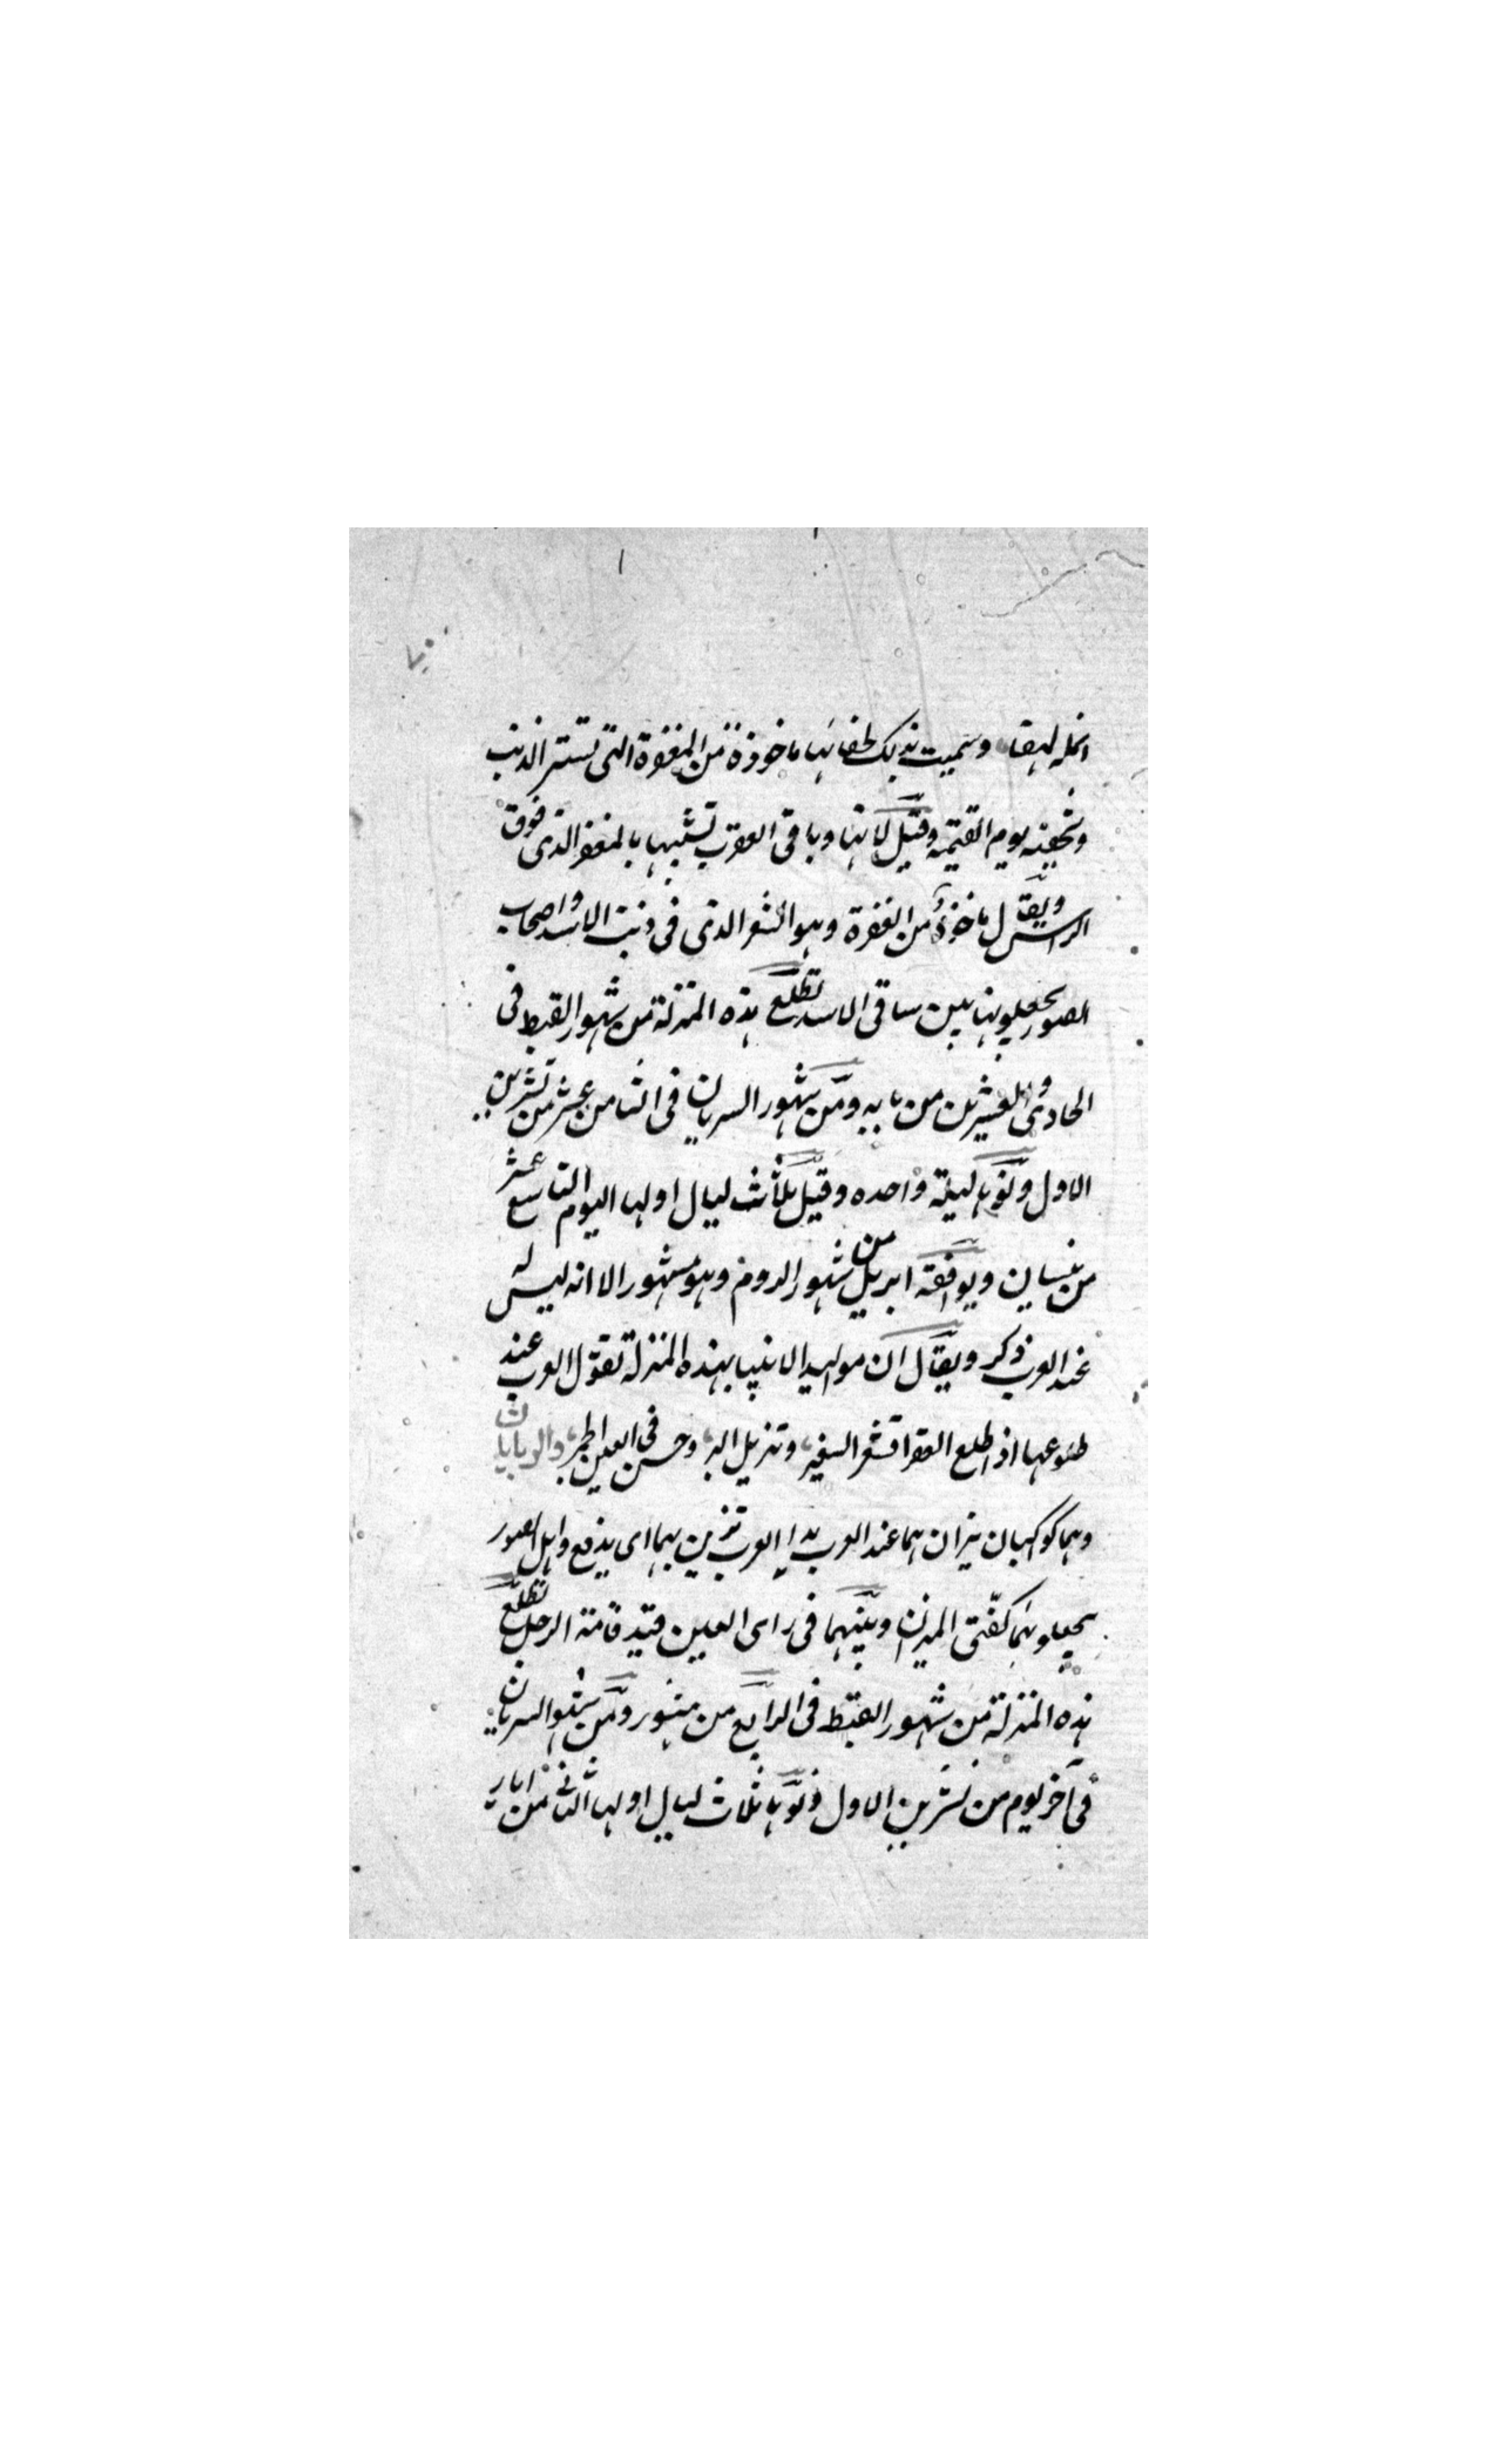 وسميت بذلك لخفائها ماخوذة من المغفرة التى تستر الذنب
وتخفيه يوم القيمة وقيل لانها وباقى العقرب تشبهها بالمغفر الذى فوق
الراس ويقال ماخوذة من الغفرة وهو الشعر الذى فى ذنب الاسد واصحاب
الصور يجعلونها بين ساقى الاسد تطلع هذه المنزلة من شهور القبط فى
الحادى والعشرين من بابه ومن شهور السريان فى الثامن عشر من تشرين
الاول ونوها ليلة واحده وقيل ثلاث ليال اولها اليوم التاسع عشر
من نيسان ويوافقه ابريل من شهور الروم وهو مشهور الا انه ليس له
عند العرب ذكر ويقال ان مواليد الانبيا بهذه المنزلة تقول العرب عند
طلوعها اذا طلع الغفر اقشعر السفر وتزيل وحسن فى العين الجمر والزبانان
وهما كوكبان نيران هما عند العرب يدا العرب تزبن بهما اى يدفع واهل الصور
يجعلونهما كفتى الميزان وبينهما فى راى العين قيد قامة الرجل تطلع
هذه المنزلة من شهور القبط فى الرابع من هتور ومن شهور السريان
فى آخر يوم من تشرين الاول ونوها ثلاث ليال اولها الثانى من ايار